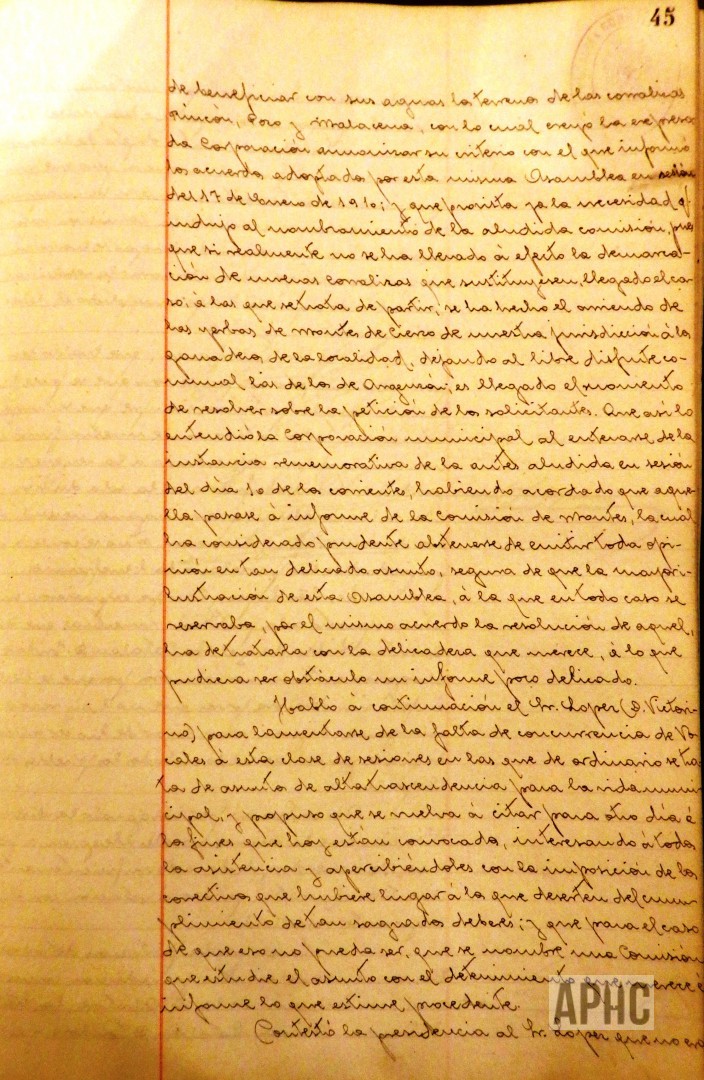 45
de beneficiar con sus aguas los terrenos de las corralizas
Rincón, Pozo y Matacena, con lo cual creyó la expresa-
da Corporación armonizar su criterio con el que informó
los acuerdos adoptados por esta misma Asamblea en sesión
del 17 de Enero de 1910; y que provista ya la necesidad q.
indujo al nombramiento de la aludida comisión, pues
que si realmente no se ha llevado à efecto la demarca-
ción de nuevas corralizas que sustituyesen, llegado el ca-
so, à las que se trata de partir, se ha hecho el arriendo de
las yerbas de Montes de Cierzo de nuestra jurisdicción à los
ganaderos de la localidad, dejando al libre disfrute co-
munal las de los de Argenzón, es llegado el momento
de resolver sobre la petición de los solicitantes. Que así lo
entendió la Corporación municipal al enterarse de la
instancia rememorativa de la antes aludida en sesión
del día 10 de los corriente, habiendo acordado que aque-
lla pasase à informe de la Comisión de Montes, la cual
ha considerado prudente abstenerse de emitir toda opi-
nión en tan delicado asunto, segura de que la mayor i-
lustración de esta Asamblea, à la que en todo caso se
reservaba, por el mismo acuerdo la resolución de aquel,
ha de tratarla con la delicadeza que merece, à lo que
pudiera ser obstáculo un informe poco delicado.
Habló à continuación el Sr. Lopez (D. Victori-
no) para lamentarse de la falta de concurrencia de Vo-
cales à esta clase de sesiones en las que de ordinario se tra-
ta de asuntos de alta trascendencia para la vida muni-
cipal, y propuso que se vuelva à citar para otro día à
los fines que hoy están convocados, interesando à todos
la asistencia y apercibiéndoles con la imposición de los
correctivos que hubiere lugar à los que deserten del cum-
plimiento de tan sagrados deberes; y que para el caso
de que eso no pueda ser, que se nombre una Comisión
que estudie el asunto con el detenimiento que merece é
informe lo que estime procedente.
Contestó la presidencia al Sr. Lopez que no era
APHC